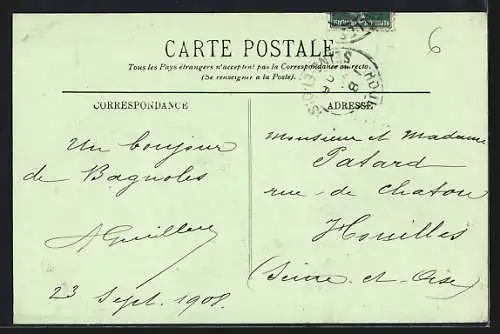 CARTE POSTALE
Tous les Pays étrangers n'acceptent pas la Correspondance au recto.
(Se renseigner à la Poste).
6
CORRESPONDANCE
ADRESSE
Un bonjour
de Bagnoles
AGuillere
23 Sept. 1908.
Monsieur et Madame
Patard
rue de Chatou
Houilles
(Seine-et-Oise)